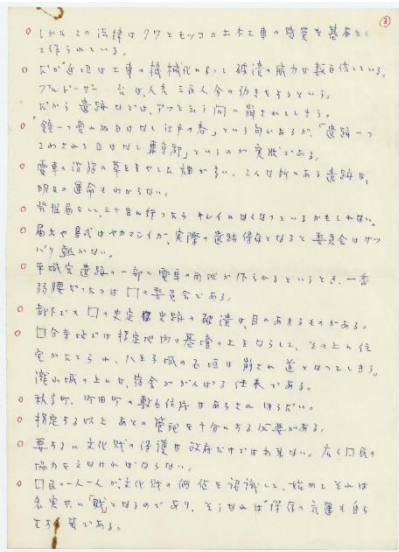 ③
○ しかもこの法律はクワとモッコの土木工事の時代を基本として
作られている。
○ だが近頃は工事の機械化によって破壊の威力は数百倍している。
ブルドーザー一台は、人夫三百人分の働きをするという。
だから遺跡などは、アッと云う間に崩されてしまう。
○ "鐘一つ売れぬ日はなし江戸の春"という句があるが、「遺跡一つ
こわされぬ日はなし東京都」というのが実状である。
○ 電車の沿線の草をはやした畑が多い、こんな所にある遺跡は、
明日の運命もわからない。
○ 発掘届をして二十日も待ったらキレイになくなっているかもしれない。
○ 届出や書式はヤカマシイが、実際の遺跡保存となると委員会はサッ
パリ動かない。
○ 平城宮遺跡の一部に電車の用地が作られるというとき、一番
弱腰だったのは口の委員会である。
○ 都下でも口の史定 史跡の破壊は、目にあまるものがある。
○ 口分寺址では指定地内の基壇の上をならして、その上に住
宅がたてられ、八王子城の石垣は崩され道となってしまう。
滝山城の上には、宿舎ががんばる仕末である。
○ 秋多町、町田町の敷石住居はあらされほうだい。
○ 指定する以上あとの管理を十分にする必要がある。
○ 要するに文化財の保護は政府だけでは出来ない。広く口民の
協力をえなければならない。
○ 口民一人一人が文化財の価値を認識して、始めてそれは
名実共に「財」となるのであり、そうなれば保存の元運も自ら
生ずる筈である。